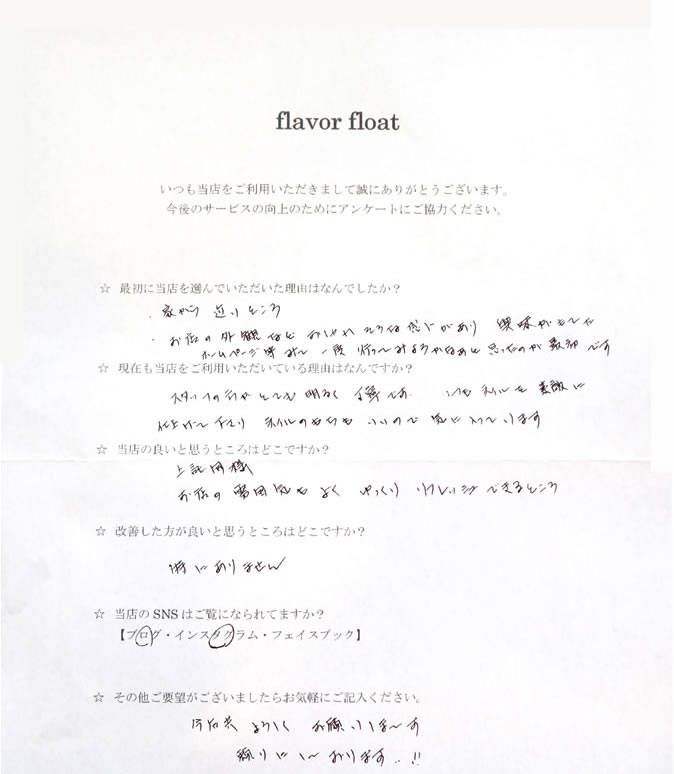 flavor float
いつも当店をご利用いただきまして誠にありがとうございます。
今後のサービスの向上のためにアンケートにご協力ください。
☆ 最初に当店を選んでいただいた理由はなんでしたか？
・家から 近いところ
・お店の外観など おしゃれ そうな感じがあり 興味がもてて
ホームページ等みて 一度 行ってみようかなあと思ったのが最初です
☆ 現在も当店をご利用いただいている理由はなんですか？
スタッフの方がとても明るく 丁寧です いつもネイルを素敵に
仕上げて下さり ネイルのもちも いいので 気に入っています
☆ 当店の良いと思うところはどこですか？
上記同様
お店の雰囲気もよく ゆっくり リフレッシュできるところ
☆ 改善した方が良いと思うところはどこですか？
特にありません
☆ 当店のSNSはご覧になられてますか？
【ブログ・インスタグラム・フェイスブック】
☆ その他ご要望がございましたらお気軽にご記入ください。
今后共 よろしく お願いしまーす
頼りに しております..!!